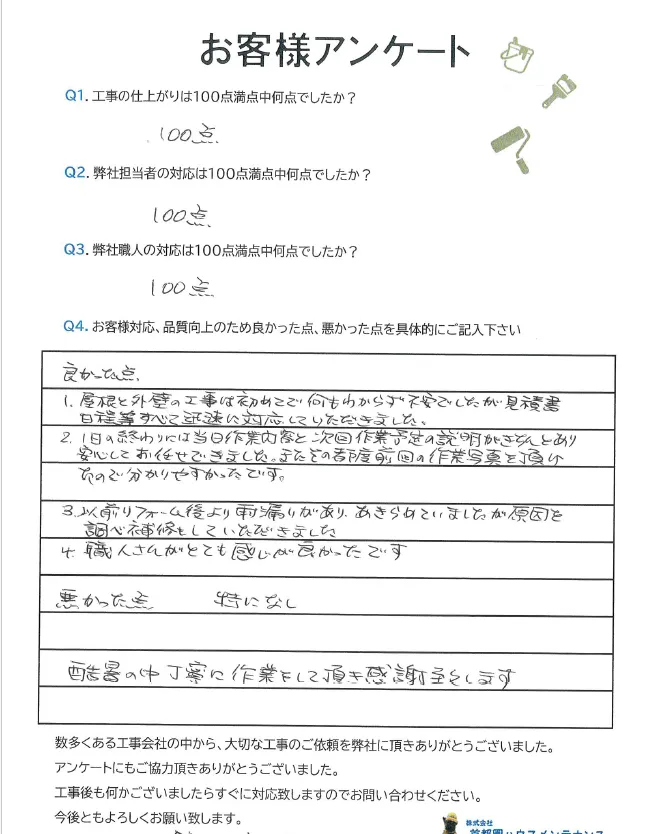 お客様アンケート
Q1. 工事の仕上がりは100点満点中何点でしたか？
100点
Q2. 弊社担当者の対応は100点満点中何点でしたか？
100点
Q3. 弊社職人の対応は100点満点中何点でしたか？
100点
Q4. お客様対応、品質向上のため良かった点、悪かった点を具体的にご記入下さい
良かった点
1. 屋根と外壁の工事は初めてで何もわからず不安でしたが見積書
日程等すべて迅速に対応していただきました。
2. 1日の終わりには当日作業内容と次回作業予定の説明がきちんとあり
安心してお任せできました。またその都度前回の作業写真を頂け
たので分かりやすかったです。
3. 以前リフォーム後より雨漏りがあり、あきらめていましたが原因を
調べ補修もしていただきました
4. 職人さんがとても感じが良かったです
悪かった点 特になし
酷暑の中丁寧に作業をして頂き感謝します
数多くある工事会社の中から、大切な工事のご依頼を弊社に頂きありがとうございました。
アンケートにもご協力頂きありがとうございました。
工事後も何かございましたらすぐに対応致しますのでお問い合わせください。
今後ともよろしくお願い致します。
株式会社
首都圏ハウスメンテナンス